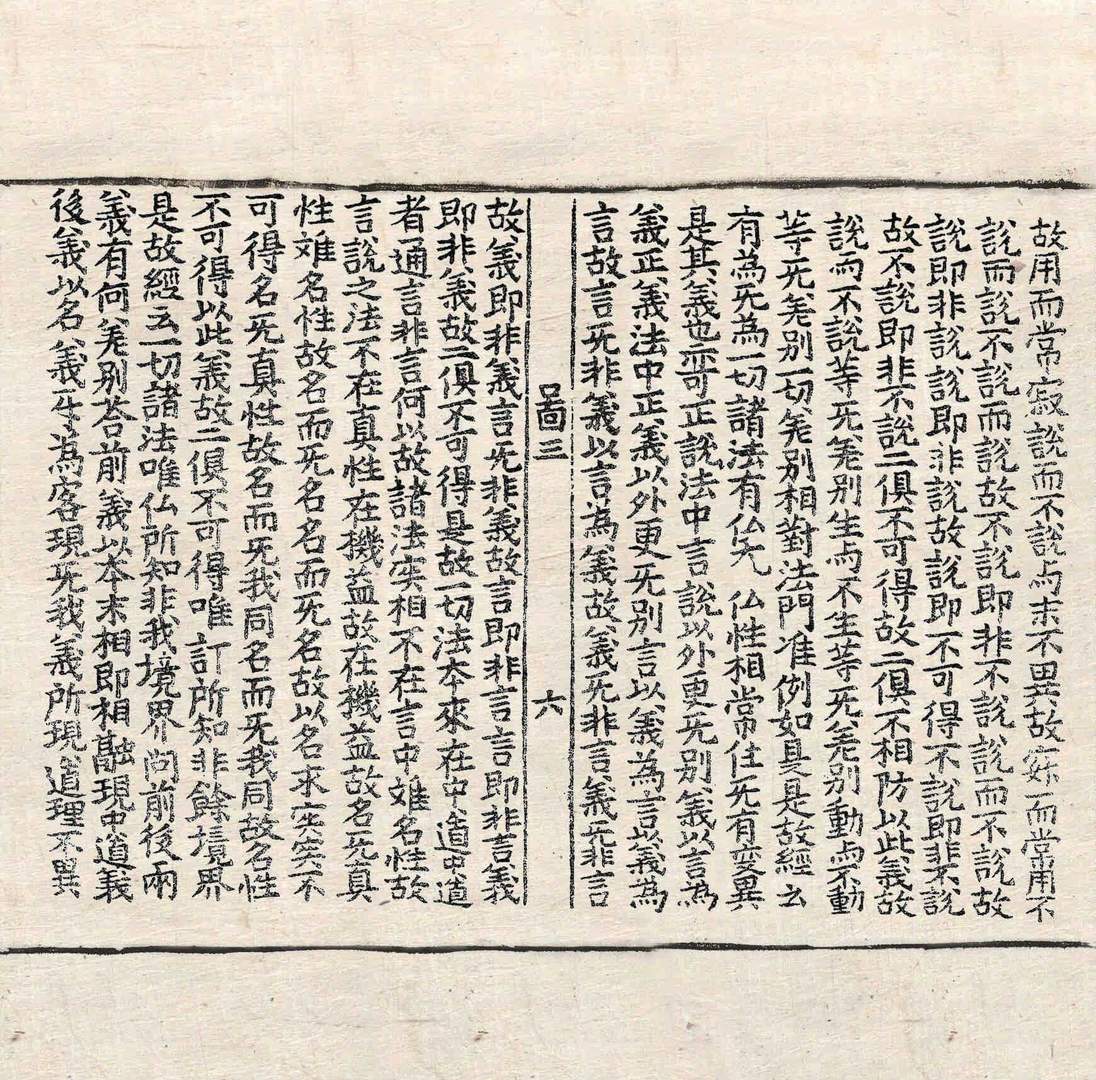 故用而常寂說而不說与末不異故寂而常用不
說而說不說而說故不說即非不說說而不說故
說即非說說即非說故說即不可得不說即非不說
故不說即非不說二俱不可得故二俱不相防以此義故
說而不說等旡差別生与不生等旡差別動与不動
等旡差別一切差別相對法門准例如是是故經云
有為旡為一切諸法有仏旡仏性相常住旡有变異
是其義也亦可正說法中言說以外更旡別義以言為
義正義法中正義以外更旡別言以義為言以義為
言故言旡非義以言為義故義旡非言義旡非言
啚三 六
故義即非義言旡非義故言即非言言即非言義
即非義故二俱不可得是故一切法本來在中道中道
者通言非言何以故諸法实相不在言中䧳名性故
言說之法不在真性在機益故在機益故名旡真
性䧳名性故名而旡名名而旡名故以名求实实不
可得名旡真性故名而旡我同名而旡我同故名性
不可得以此義故二俱不可得唯訂所知非餘境界
是故經云一切諸法唯仏所知非我境界問前後兩
義有何差別荅前義以本末相即相融現中道義
後義以名義牙為客現旡我義所現道理不異